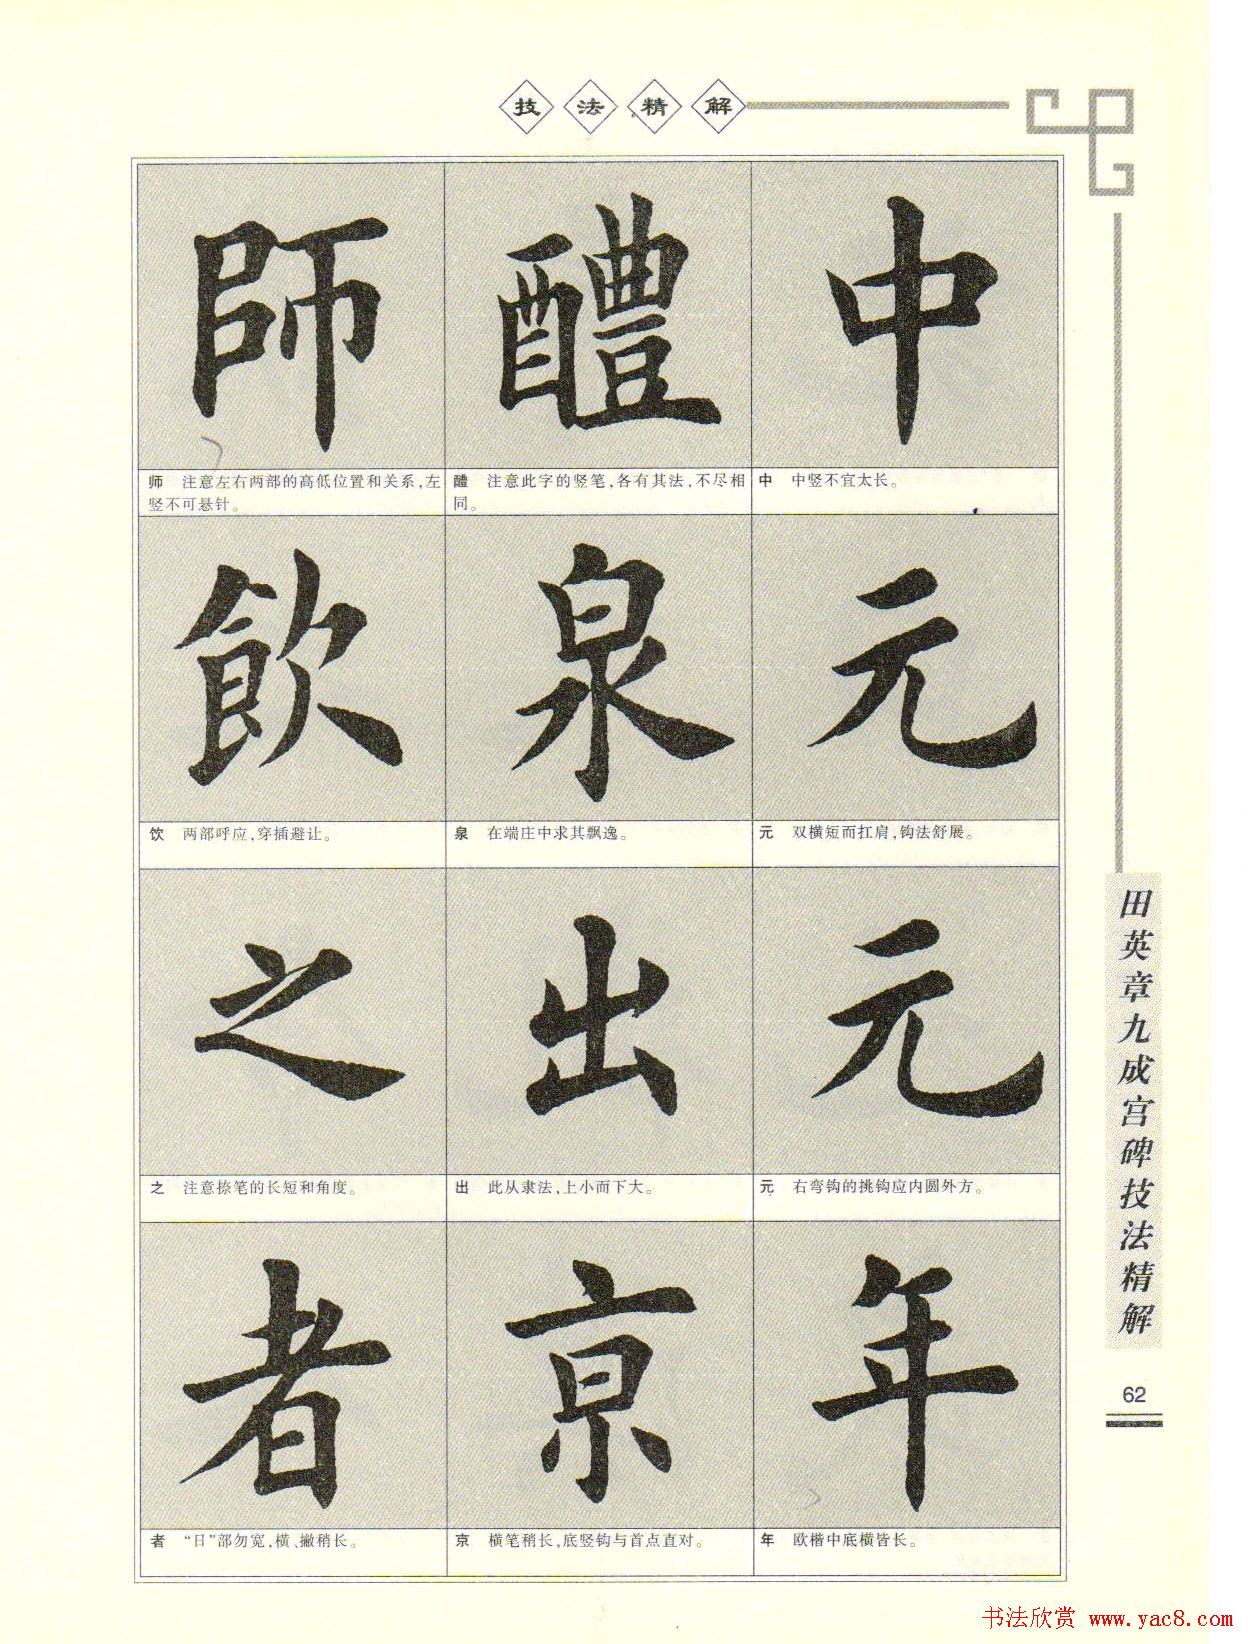 技法精解
師 醴 中
师 注意左右两部的高低位置和关系,左
竖不可悬针。
醴 注意此字的竖笔,各有其法,不尽相
同。
中 中竖不宜太长。
飲 泉 元
饮 两部呼应,穿插避让。
泉 在端庄中求其飘逸。
元 双横短而扛肩,钩法舒展。
之 出 元
之 注意捺笔的长短和角度。
出 此从隶法,上小而下大。
元 右弯钩的挑钩应内圆外方。
者 京 年
者 “日”部勿宽,横、撇稍长。
京 横笔稍长,底竖钩与首点直对。
年 欧楷中底横皆长。
田英章九成宫碑技法精解
62
书法欣赏 www.yac8.com